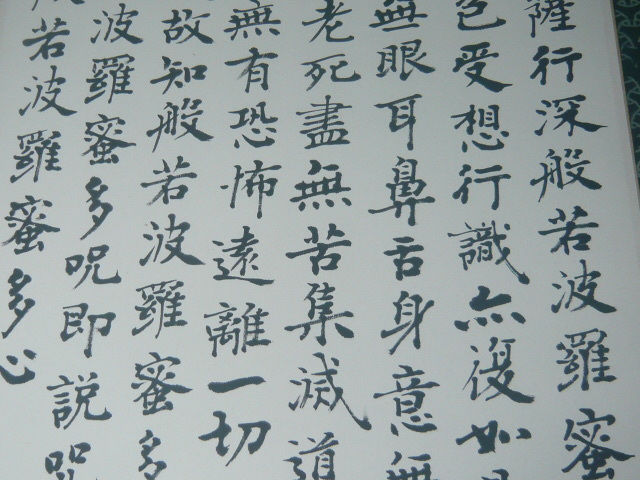 薩行深般若波羅蜜
色受想行識亦復如
無眼耳鼻舌身意無
老死盡無苦集滅道
無有恐怖遠離一切
故知般若波羅蜜多
波羅蜜多呪即説呪
若波羅蜜多心